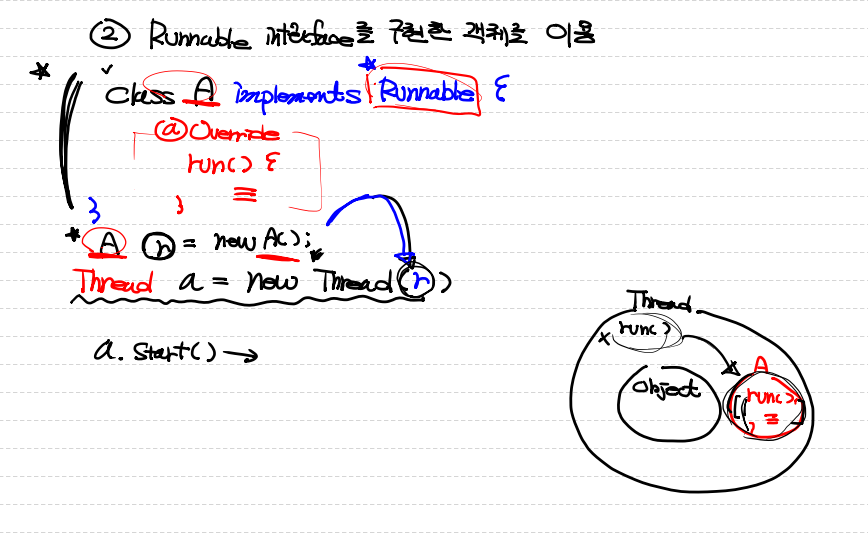 ② Runnable interface를 구현한 객체로 이용
class A implements Runnable {
@Override
run() {
}
}
A r = new A();
Thread a = new Thread(r)
a. start() →
Thread
run()
A
Object
run() {
}